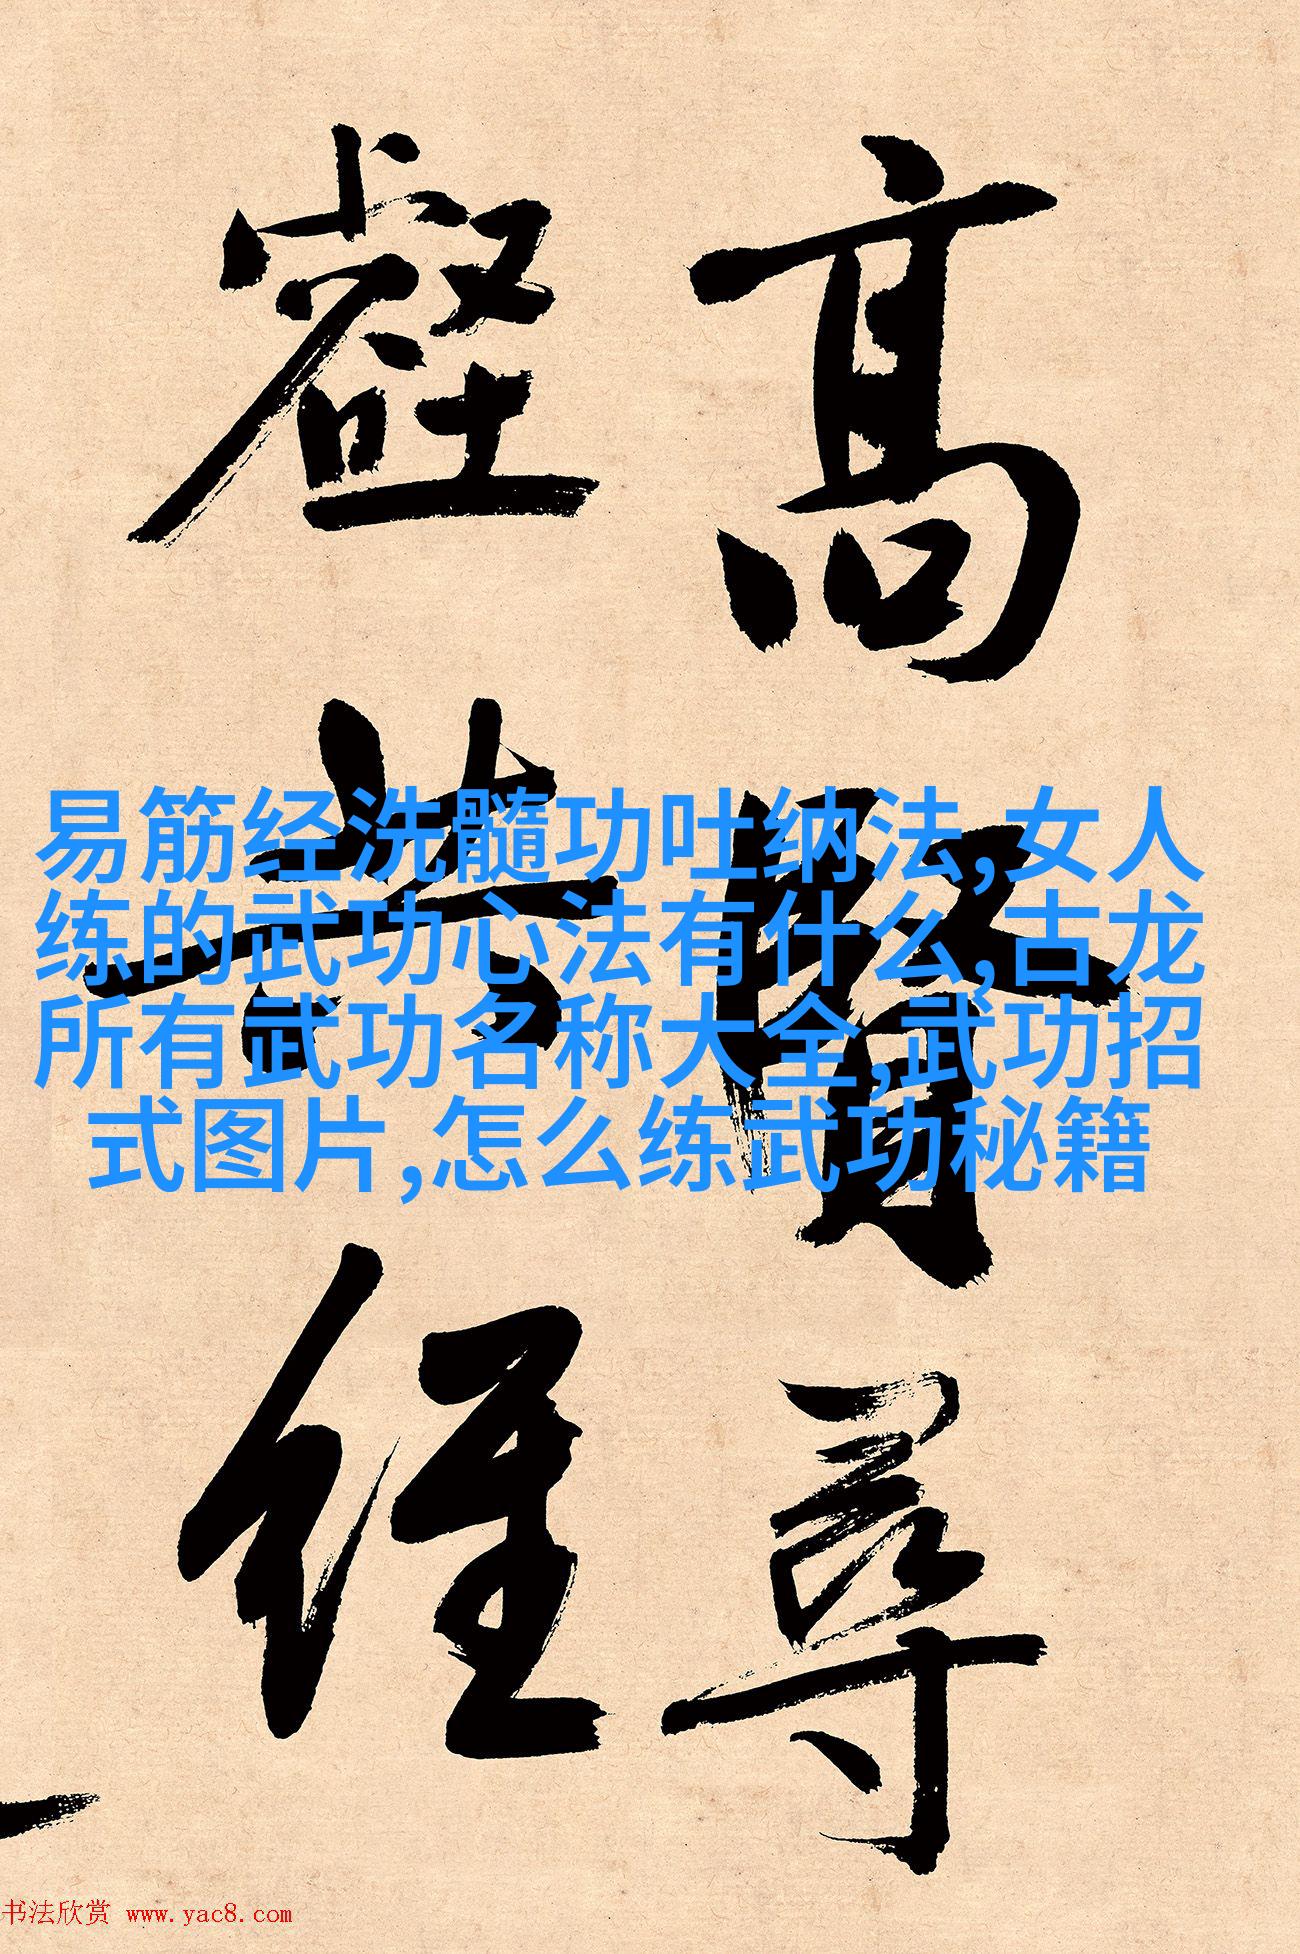 高賢尋
壑共經
易筋经洗髓功吐纳法,女人
练的武功心法有什么,古龙
所有武功名称大全,武功招
式图片,怎么练武功秘籍
书法欣赏 www.yac8.com